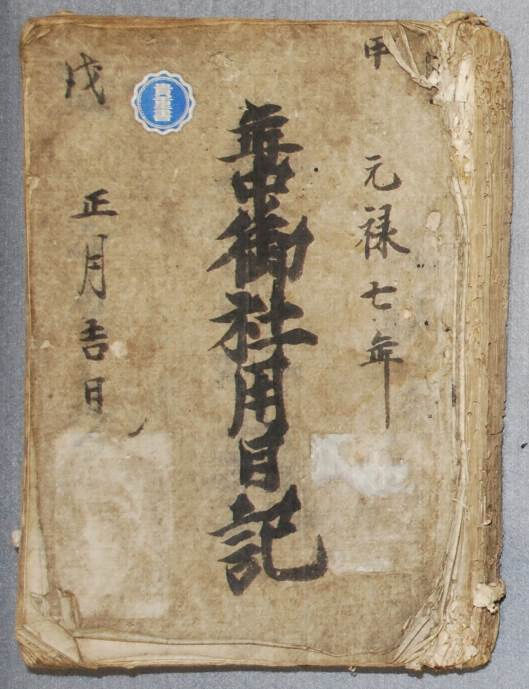 甲
元禄七年
年中御社用日記
戌
正月吉日
貴重書